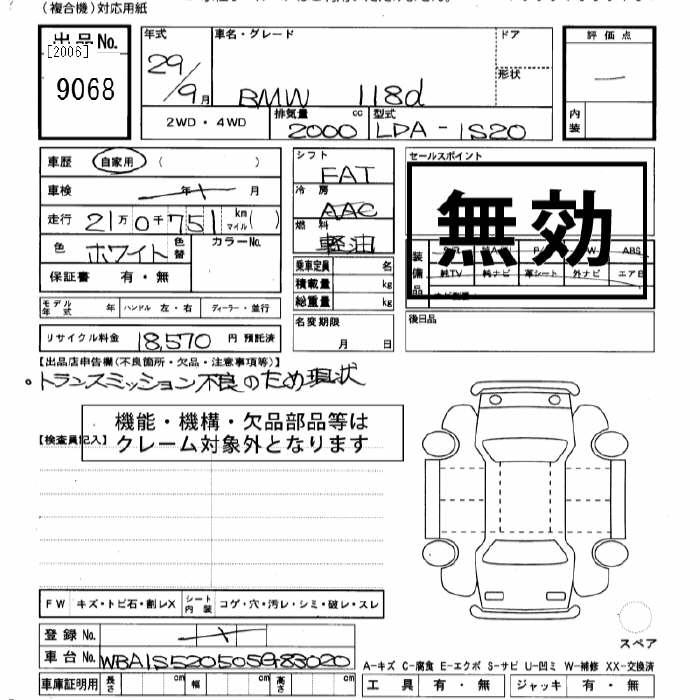 （複合機）対応用紙
出品No.
[2006]
9068
年式 29/9月
車名・グレード BMW 118d
ドア
形状
評価点 —
内装
2WD・4WD
排気量 2000 cc
型式 LDA-1S20
車歴 自家用 （ ）
車検 年 月
走行 21万0千751 km マイル ( )
色 ホワイト 色替 カラーNo.
保証書 有・無
モデル年式 年 ハンドル 左・右 ディーラー・並行
リサイクル料金 18,570 円 預託済
シフト FAT
冷房 AAC
燃料 軽油
乗車定員 名
積載量 kg
総重量 kg
名変期限
月 日
セールスポイント
無効
装備品
ABS
純TV 純ナビ 革シート 外ナビ エアB
後日品
【出品店申告欄(不良箇所・欠品・注意事項等)】
。トランスミッション不良のため現状
機能・機構・欠品部品等は
クレーム対象外となります
【検査員記入】
FW キズ・トビ石・割レX シート内装 コゲ・穴・汚レ・シミ・破レ・スレ
登録 No.
車台 No. WBA1S520505G83020
車庫証明用 長さ cm 幅 cm 高さ cm
スペア
A-キズ C-腐食 E-エクボ S-サビ U-凹ミ W-補修 XX-交換済
工具 有・無 ジャッキ 有・無